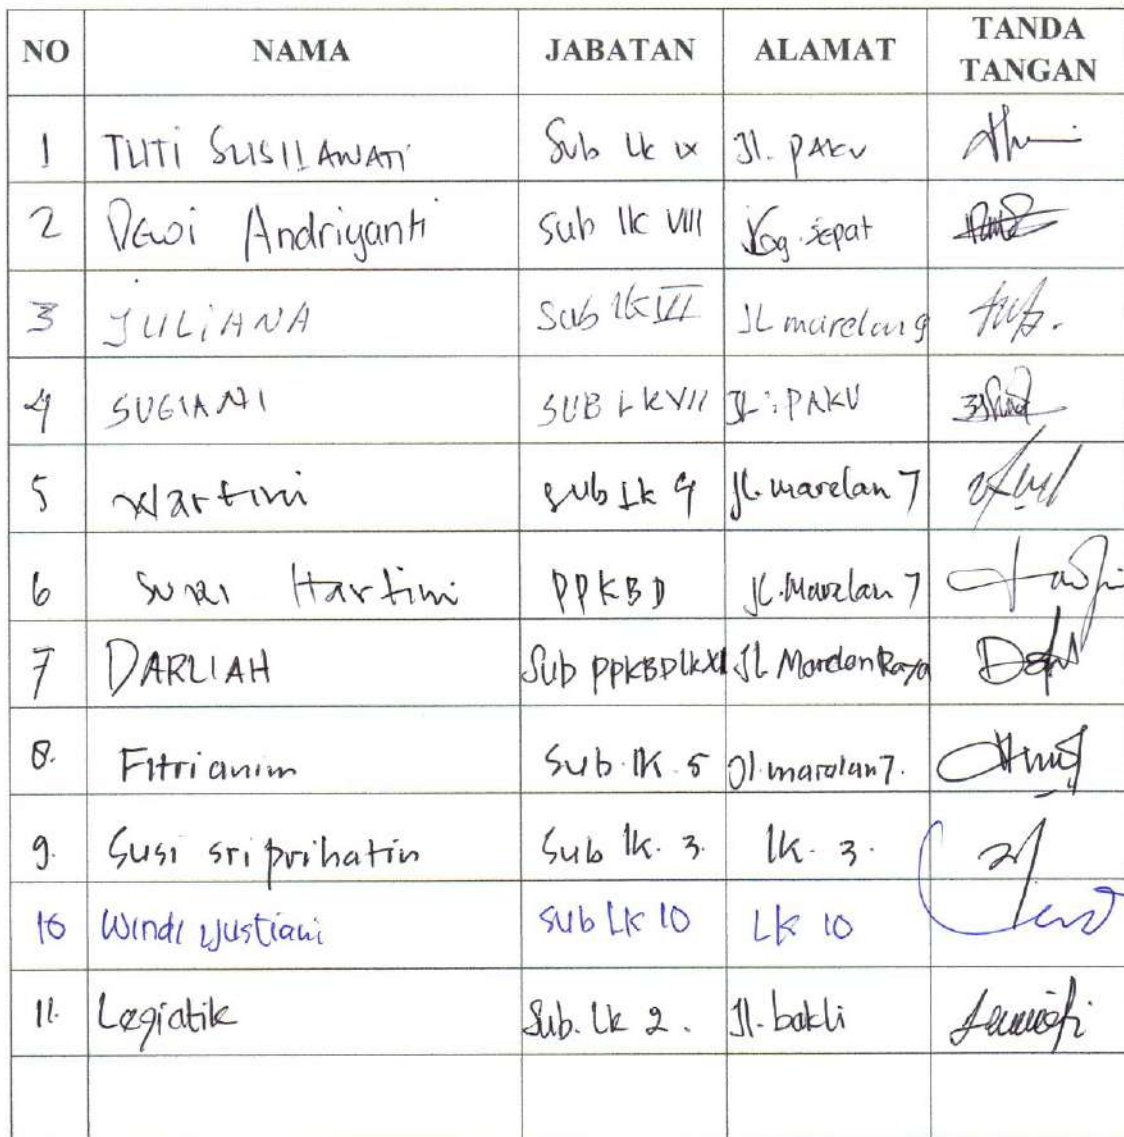 NO NAMA JABATAN ALAMAT TANDA TANGAN
1 TUTI SUSILAWATI Sub Lk IX Jl. PAKU
2 Dewi Andriyanti Sub lk VIII sepat
3 JULIANA Sub lk VII JL marelan 9
4 SUGIANI SUB LK VII JL : PAKU
5 Wartini sub Lk 9 Jl. marelan 7
6 Hartini PPKBD Jl. Marelan 7
7 DARLIAH Sub PPKBD LK XI JL Marelan Raya
8. Fitrianim Sub. lk. 5 Jl. marelan 7.
9. Susi sri prihatin Sub lk. 3. lk. 3.
10 Windi yustiani Sub Lk 10 Lk 10
11. Legiatik Sub. Lk 2. Jl. bakti